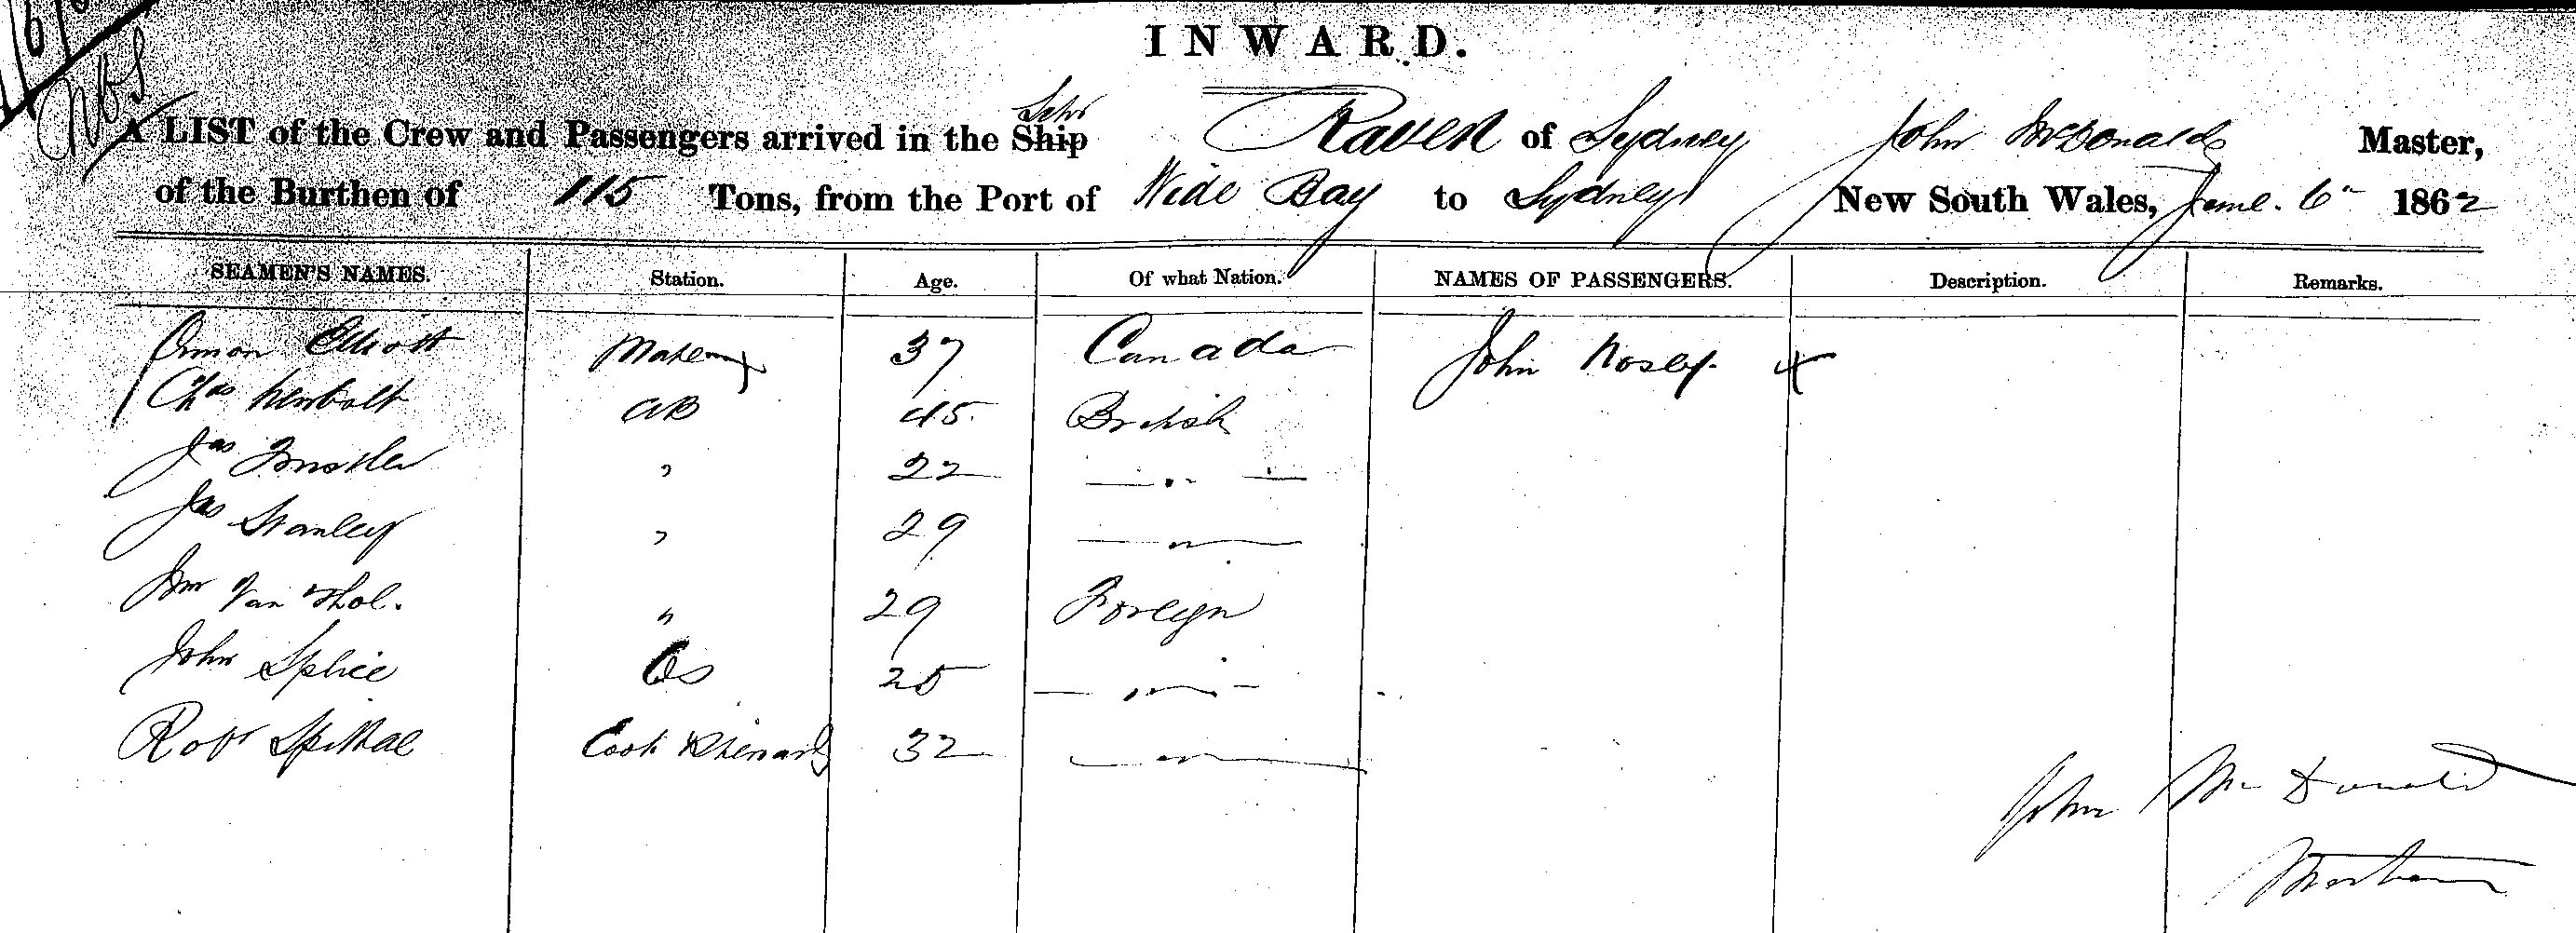 INWARD.
Schr
A LIST of the Crew and Passengers arrived in the Ship Raven of Sydney John McDonald Master,
of the Burthen of 115 Tons, from the Port of Wide Bay to Sydney New South Wales, June 6 1862
SEAMEN'S NAMES. Station. Age. Of what Nation. NAMES OF PASSENGERS. Description. Remarks.
Elliott Mate 37 Canada John Nosley
Chas Newbolt AB 45. British
Jas " 22 — " —
Jas Stanley " 29 — " —
Van Thol. " 29 Foreign
John Splice OS 25 — " —
Robt Spittal Cook & Steward 32 — " —
John McDonald